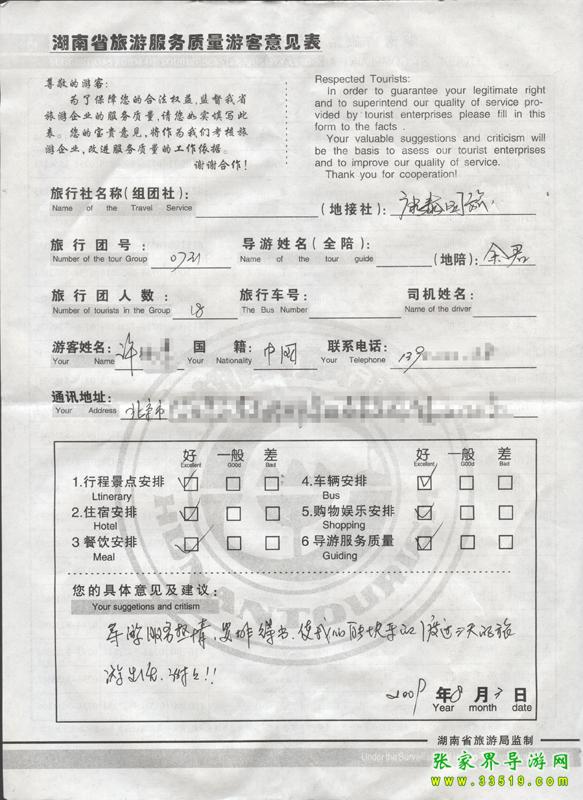 湖南省旅游服务质量游客意见表
尊敬的游客:
为了保障您的合法权益,监督我省
旅游企业的服务质量,请您如实填写此
表。您的宝贵意见,将作为我们考核旅
游企业,改进服务质量的工作依据。
谢谢合作!
Respected Tourists:
In order to guarantee your legitimate right
and to superintend our quality of service pro-
vided by tourist enterprises please fill in this
form to the facts .
Your valuable suggestions and criticism will
be the basis to asess our tourist enterprises
and to improve our quality of service.
Thank you for cooperation!
旅行社名称(组团社): (地接社): 康泰国旅
Name of the Travel Service
旅行团号: 0721 导游姓名(全陪): (地陪): 余君
Number of the tour Group Name of the tour guide
旅行团人数: 18 旅行车号: 司机姓名:
Number of tourists in the Group The Bus Number Name of the driver
游客姓名: 许 国籍: 中国 联系电话: 139
Your Name Your Nationality Your Telephone
通讯地址: 北京市
Your Address
好 一般 差 好 一般 差
Excellent Good Bad Excellent Good Bad
1.行程景点安排 4.车辆安排
Ltinerary Bus
2.住宿安排 5.购物娱乐安排
Hotel Shopping
3 餐饮安排 6 导游服务质量
Meal Guiding
HUNAN TOURISM
您的具体意见及建议:
Your suggetions and critism
导游服务热情,安排得当,使我们愉快平安的度过三天的旅
游生活,谢谢!!
2009 年 8 月 3 日
Year month date
湖南省旅游局监制
Under the Survei
张家界导游网
www.33519.com